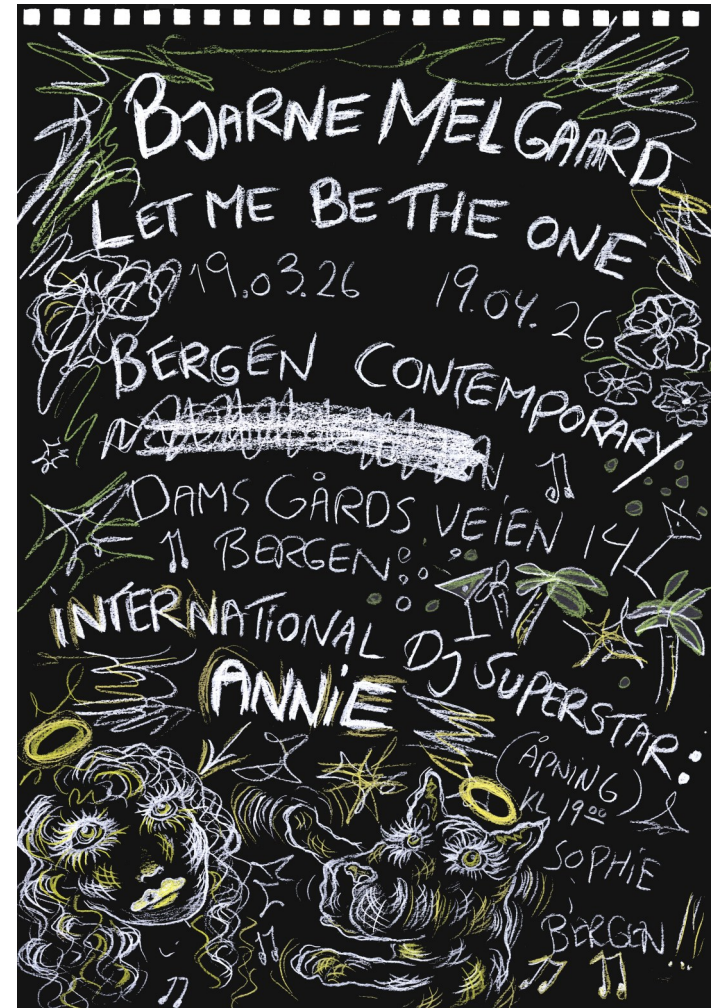 BJARNE MELGAARD
LET ME BE THE ONE
19.03.26 19.04.26
BERGEN CONTEMPORARY
DAMSGÅRDSVEIEN 14
BERGEN
INTERNATIONAL DJ SUPERSTAR:
ANNIE
(ÅPNING)
KL 19⁰⁰
SOPHIE
BERGEN!!